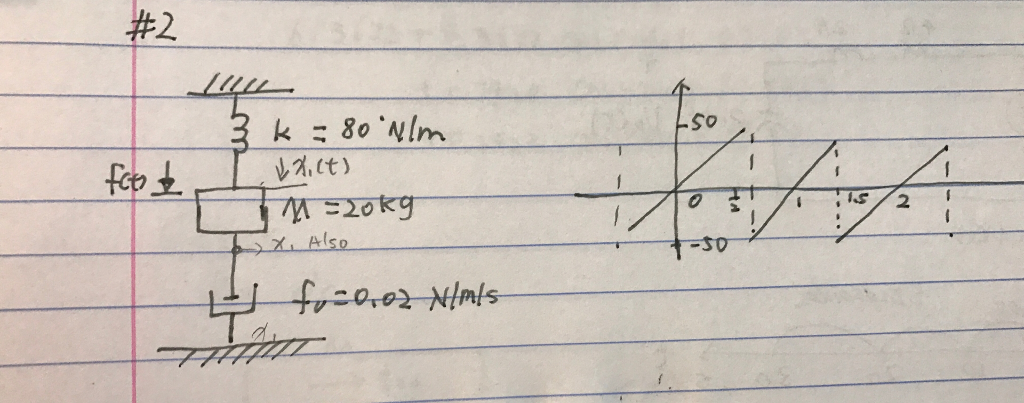 #2
k = 80 N/m
f(t)
x₁(t)
M = 20kg
x₁ Also
fv = 0.02 N/m/s
x₁
50
0 1/2 1 1.5 2
-50